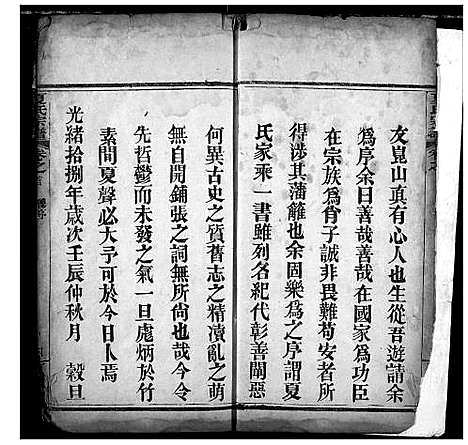 文崑山真有心人也生從吾遊請余
為序余曰善哉善哉在國家為功臣
在宗族為肖子誠非畏難苟安者所
得涉其藩籬也余固樂為之序謂夏
氏家乘一書雖列名紀代彰善闡惡
何異古史之質舊志之精凟亂之萌
無自開鋪張之詞無所尚也哉今令
先哲鬱而未發之氣一旦彪炳於竹
素間夏聲必大予可於今日卜焉
光緒拾捌年歲次壬辰仲秋月 榖旦